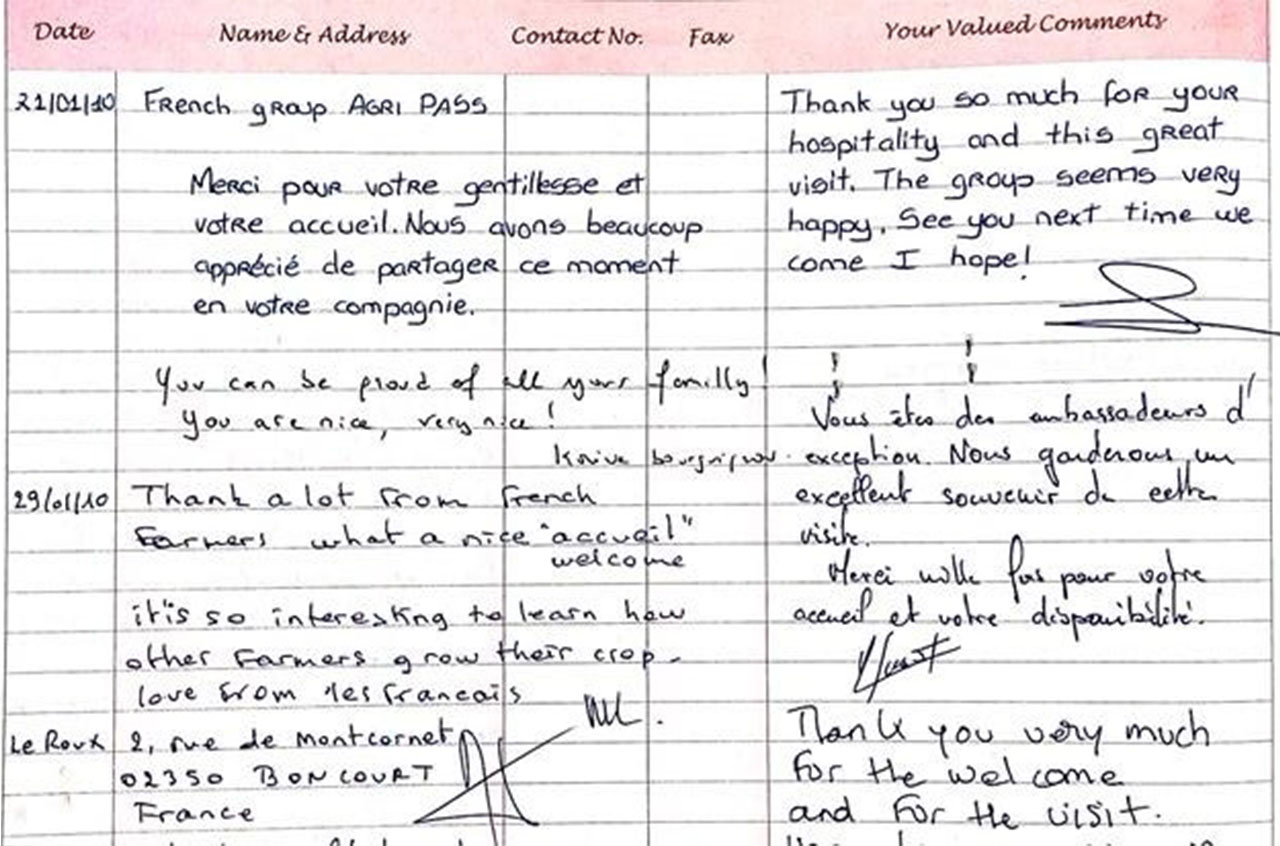 Date Name & Address Contact No. Fax Your Valued Comments
21/01/10 French group AGRI PASS
Merci pour votre gentillesse et
votre accueil. Nous avons beaucoup
apprécié de partager ce moment
en votre compagnie.
Thank you so much for your
hospitality and this great
visit. The group seems very
happy. See you next time we
come I hope!
You can be proud of all yours familly!
You are nice, very nice!
Vous êtes des ambassadeurs d'
exception. Nous garderons un
excellent souvenir de cette
visite.
Merci mille fois pour votre
accueil et votre disponibilité.
29/01/10 Thank a lot from french
Farmers what a nice "accueil"
welcome
it's so interesting to learn how
other Farmers grow their crop.
love from les francais
Le Roux 2, rue de montcornet
02350 BONCOURT
France
Thank you very much
for the welcome
and for the visit.